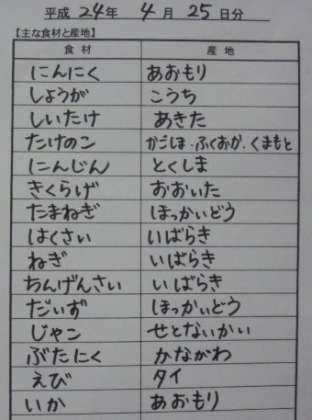 平成 24年 4月 25日分
【主な食材と産地】
食材 産地
にんにく あおもり
しょうが こうち
しいたけ あきた
たけのコ かごしま・ふくおか・くまもと
にんじん とくしま
きくらげ おおいた
たまねぎ ほっかいどう
はくさい いばらき
ねぎ いばらき
ちんげんさい いばらき
だいず ほっかいどう
じゃコ せとないかい
ぶたにく かながわ
えび タイ
いか あおもり